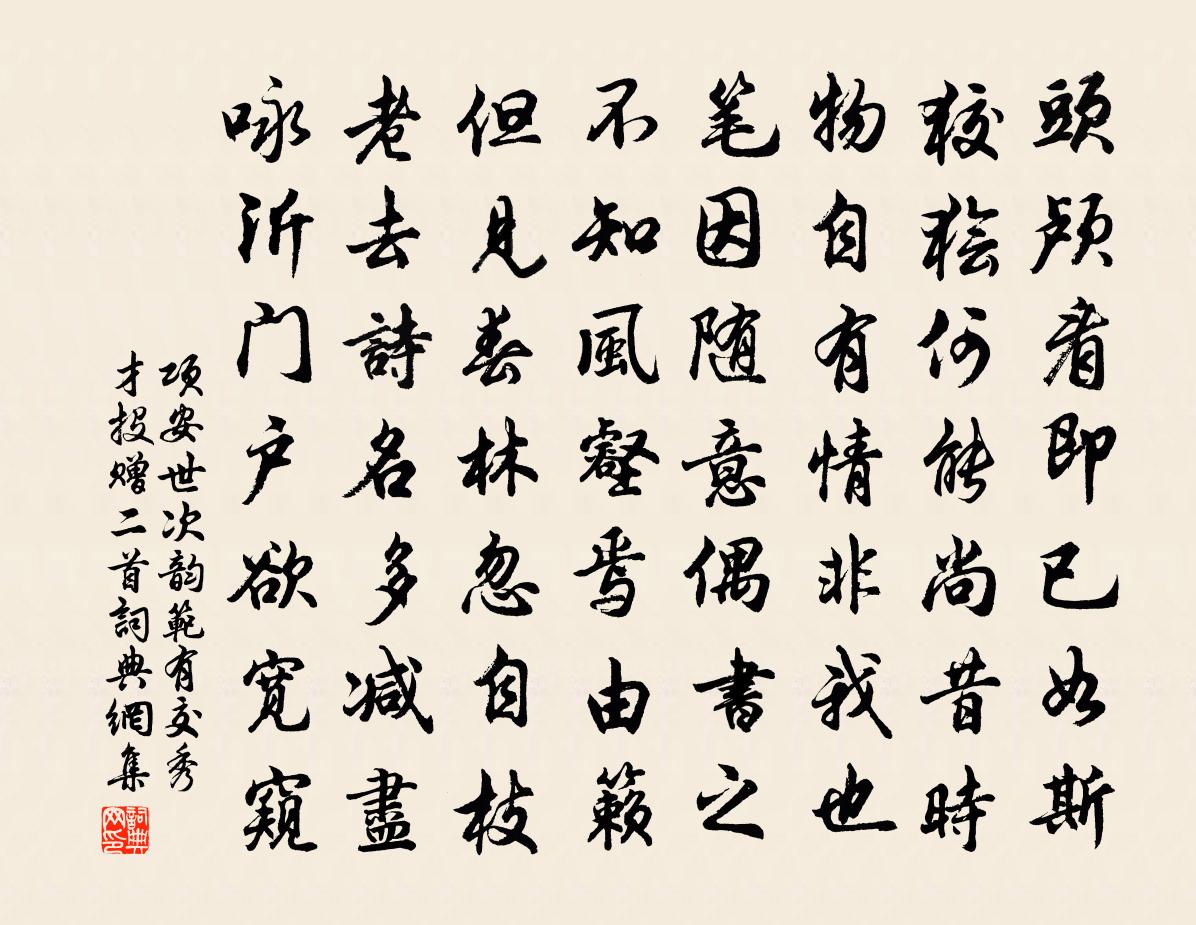 頭颅看即已如斯
狡獪何能尚昔時
物自有情非我也
笔因随意偶書之
不知風壑焉由籟
但見春林忽自枝
老去詩名多减盡
咏沂门户欲寬窺
項安世次韵範有交秀
才投贈二首詞典網集
詞典
网印